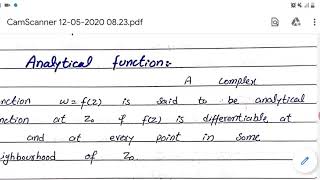 CamScanner 12-05-2020 08.23.pdf
Analytical function:-
A complex
nction w=f(z) is said to be analytical
nction at Z₀ if f(z) is differentiable, at
and at every point in some
eighbourhood of Z₀.